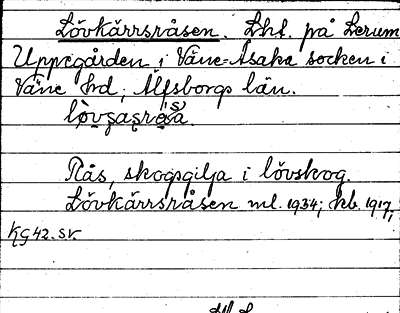 Lövkärrsråsen. Lht. på Lerum
Uppegården i Väne-Åsaka socken i
Väne hd, Älfsborgs län.
Rås, skogsgilja i lövskog.
Lövkärrsråsen ml. 1934; kb. 1917,
KG42.sv.